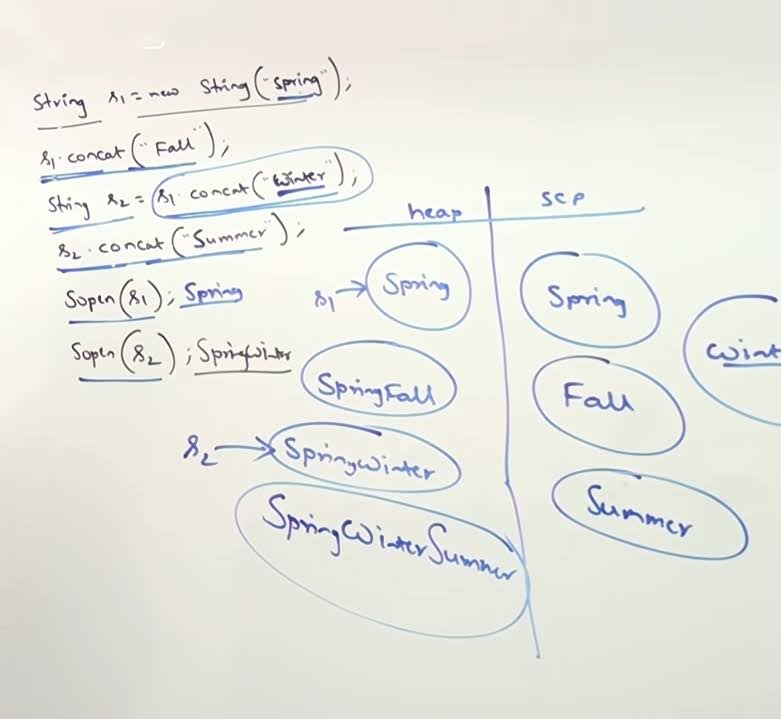 String s1 = new String("spring");
s1.concat("Fall");
String s2 = s1.concat("winter");
s2.concat("Summer");
Sopln(s1); Spring
Sopln(s2); SpringWinter
heap
SCP
s1 → Spring
Spring
SpringFall
Fall
Wint
s2 → SpringWinter
Summer
SpringWinterSummer